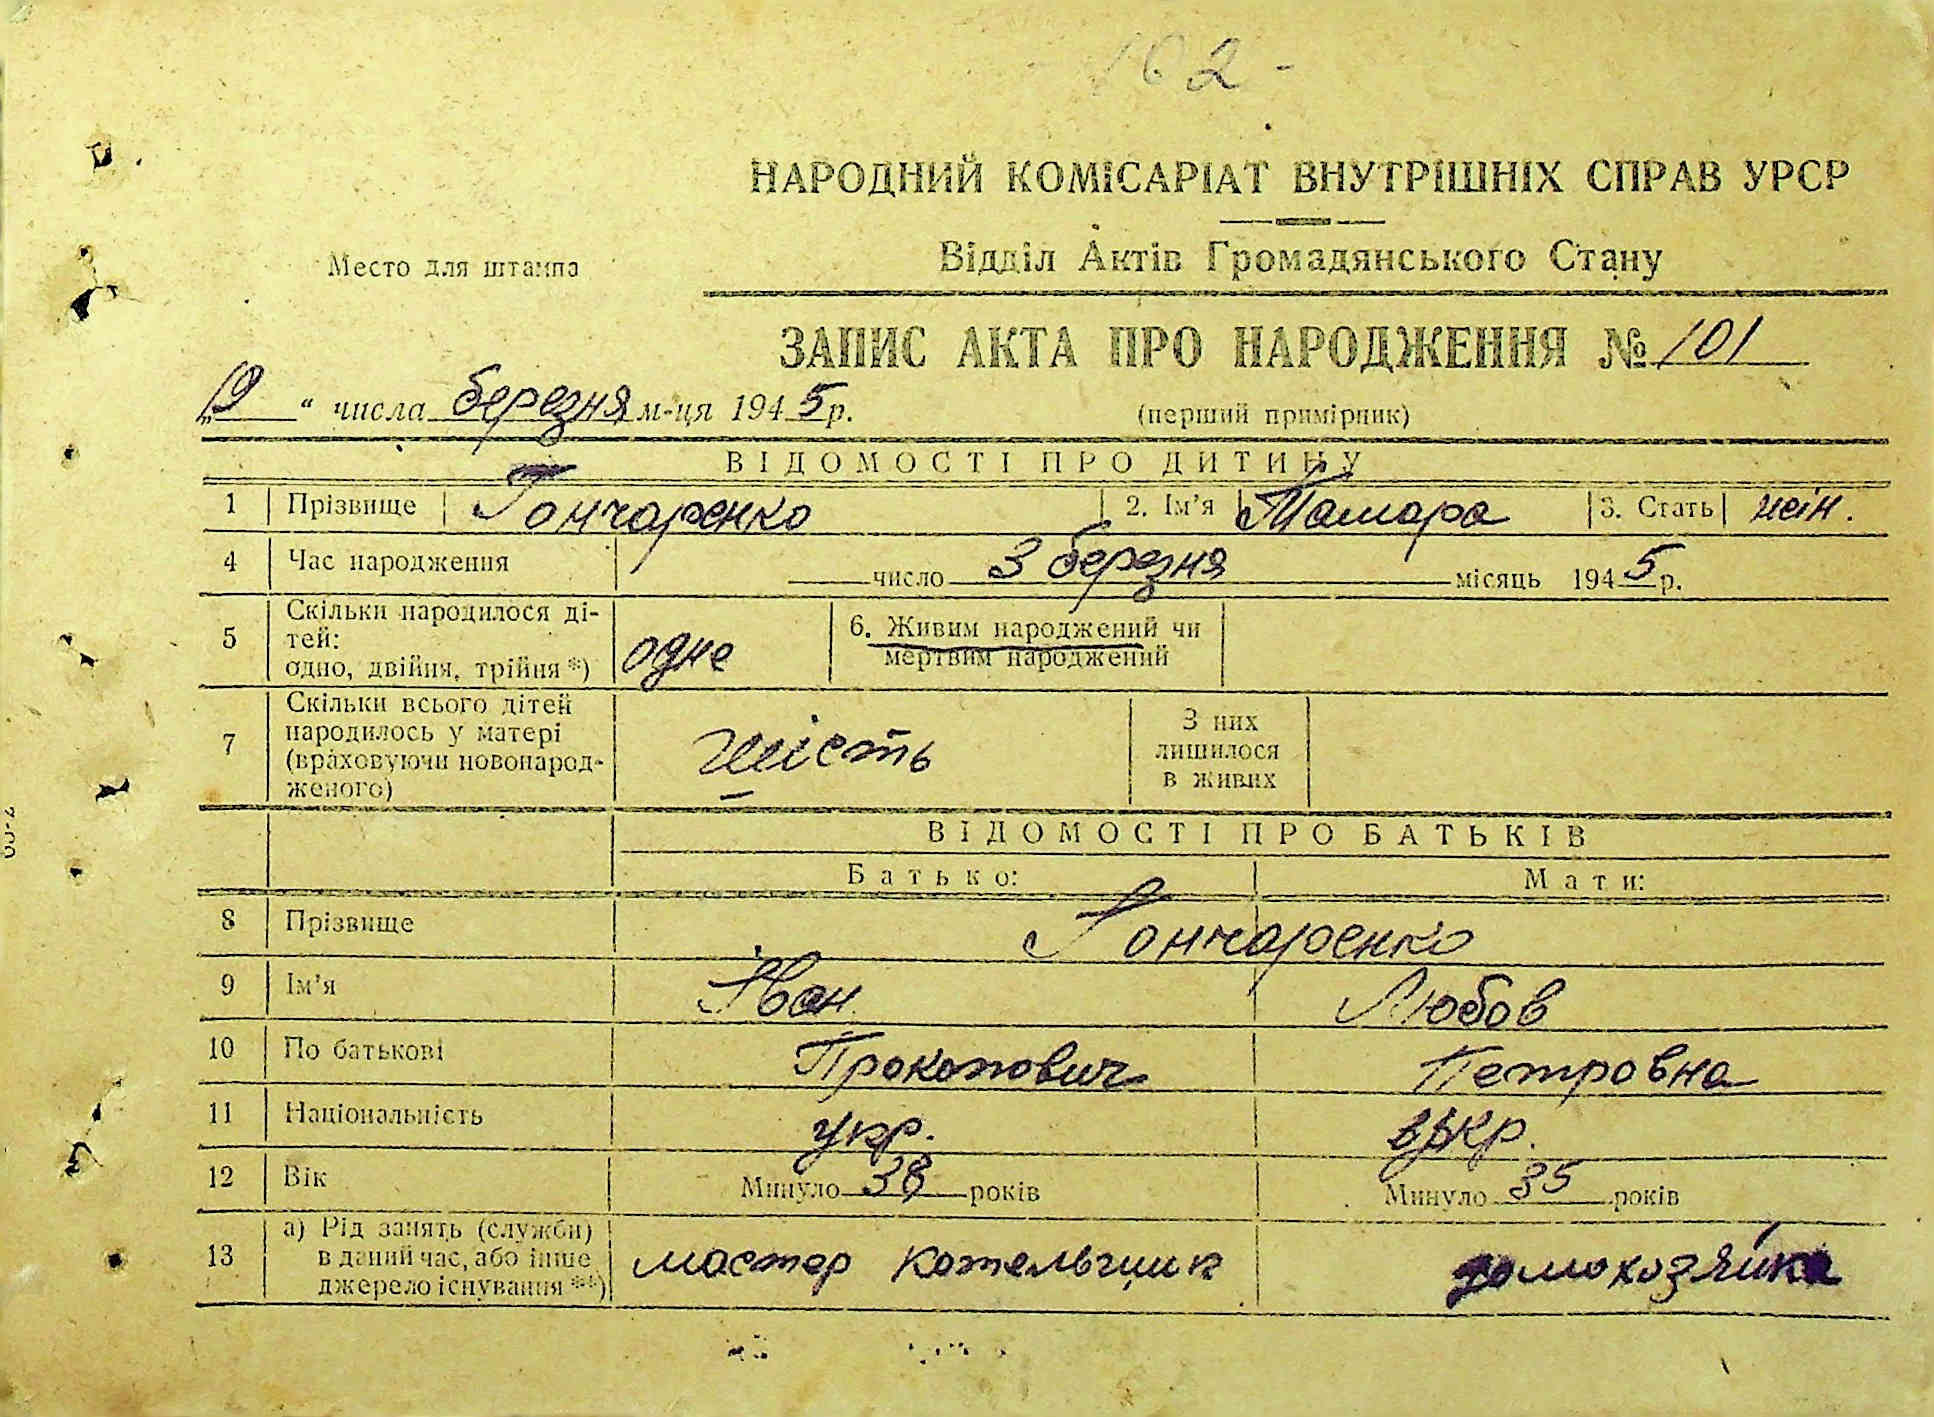 102 -
НАРОДНИЙ КОМІСАРІАТ ВНУТРІШНІХ СПРАВ УРСР
Відділ Актів Громадянського Стану
Место для штампа
ЗАПИС АКТА ПРО НАРОДЖЕННЯ № 101
„19“ числа березня м-ця 1945 р.
(перший примірник)
ВІДОМОСТІ ПРО ДИТИНУ
1 Прізвище Гончаренко 2. Ім'я Тамара 3. Стать жін.
4 Час народження число 3 березня місяць 1945 р.
5 Скільки народилося ді-
тей:
одно, двійня, трійня *) одне
6. Живим народжений чи
мертвим народжений
7 Скільки всього дітей
народилось у матері
(враховуючи новонарод-
женого) шість
З них
лишилося
в живих
ВІДОМОСТІ ПРО БАТЬКІВ
Батько: Мати:
8 Прізвище Гончаренко
9 Ім'я Іван Любов
10 По батькові Прокопович Петровна
11 Національність укр. укр.
12 Вік Минуло 38 років Минуло 35 років
13 а) Рід занять (служби)
в даний час, або інше
джерело існування **) мастер котельщик домохозяйка